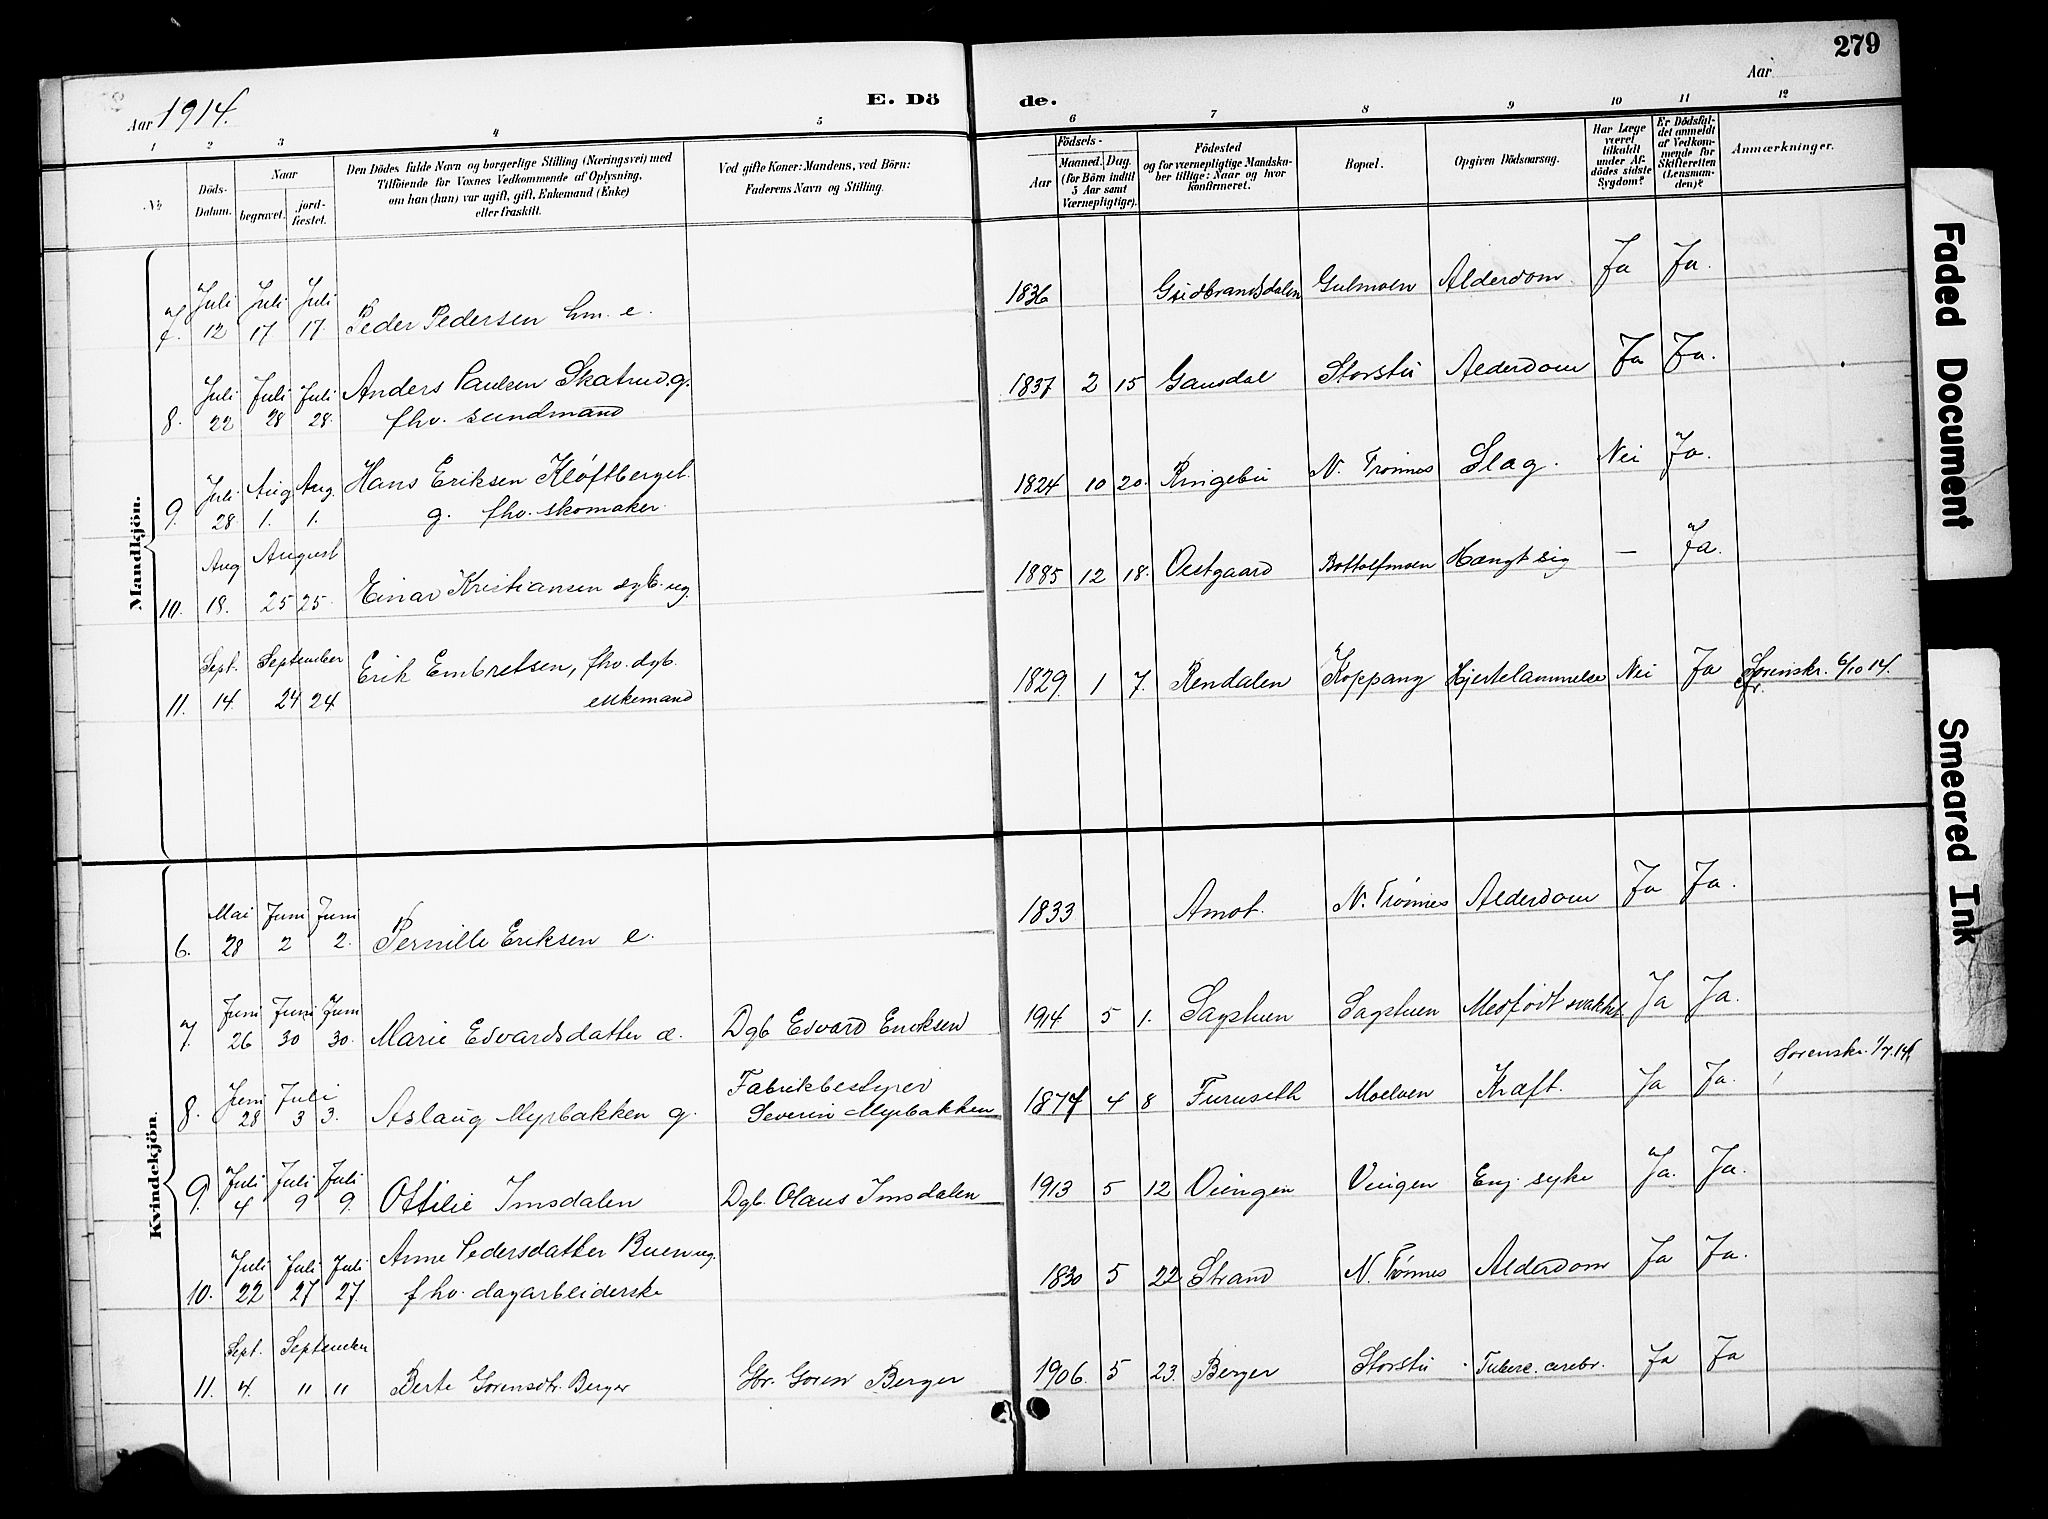 279
Aar 1914.
E. Dö
de.
Aar
1 2 3 4 5 6 7 8 9 10 11 12
No
Döds-Datum.
Naar
begravet.
jord-fæstet.
Den Dödes fulde Navn og borgerlige Stilling (Næringsvei) med
Tilföiende for Voxnes Vedkommende af Oplysning,
om han (hun) var ugift, gift, Enkemand (Enke)
eller fraskilt.
Ved gifte Koner: Mandens, ved Börn:
Faderens Navn og Stilling.
Födsels-
Aar
Maaned. Dag.
(for Börn indtil
5 Aar samt
Værnepligtige).
Födested
og for værnepligtige Mandska-
ber tillige: Naar og hvor
konfirmeret.
Bopæl.
Opgiven Dödsaarsag.
Har Læge
været
tilkaldt
under Af-
dödes sidste
Sygdom?
Er Dödsfal-
det anmeldt
af Vedkom-
mende for
Skifteretten
(Lensman-
den)?
Anmærkninger.
Mandkjön.
7. Juli 12 Juli 17 Juli 17. Peder Pedersen hm. e. 1836 Gudbrandsdalen Gulmoen Alderdom. Ja Ja.
8. Juli 22 Juli 28 Juli 28. Anders Paulsen Skatrud. g. 1837 2 15 Gausdal Storstu Alderdom Ja Ja.
fhv. sundmand
9. Juli 28. Aug 1. Aug. 1. Hans Eriksen Kløftberget. 1824 10 20. Ringebu N. Trønnes Slag. Nei Ja.
g. fhv. skomaker.
10. Aug 18. August 25 25. Einar Kristiansen dgb. ug. 1885 12 18. Vestgaard Bottolfmoen Hængt sig — Ja.
11. Sept. 14. September 24 24. Erik Embretsen, fhv. dgb. 1829 1 7. Rendalen Koppang Hjertelammelse Nei Ja Sorenskr. 6/10 14.
enkemand
Kvindekjön.
6. Mai 28 Juni 2 Juni 2. Pernille Eriksen e. 1833 Amot. N. Trønnes Alderdom Ja Ja.
7. Juni 26 Juni 30 Juni 30. Marie Edvardsdatter æ. Dgb Edvard Eriksen 1914 5 1. Sagstuen Sagstuen Medfødt svakhet Ja Ja.
8. Juni 28 Juli 3 3. Aslaug Myrbakken g. Fabrikbestyrer 1874 4 8 Furuseth Moelven Kræft. Ja Ja. Sorenskr. 1/7.14
Severin Myrbakken
9. Juli 4 Juli 9 Juli 9. Ottilie Imsdalen Dgb. Olaus Imsdalen 1913 5 12 Vingen Vingen Eng. syke Ja. Ja.
10. Juli 22 Juli 27 Juli 27 Anne Pedersdatter Buen ug. 1830 5 22. Strand N. Trønnes Alderdom Ja Ja.
fhv. dagarbeiderske
11. Sept. 4. September " " Berte Gorensdtr. Berger Gbr. Goren Berger 1906. 5 23. Berger Storstu Tuberc. cerebr. Ja Ja
Faded Document
Smeared Ink